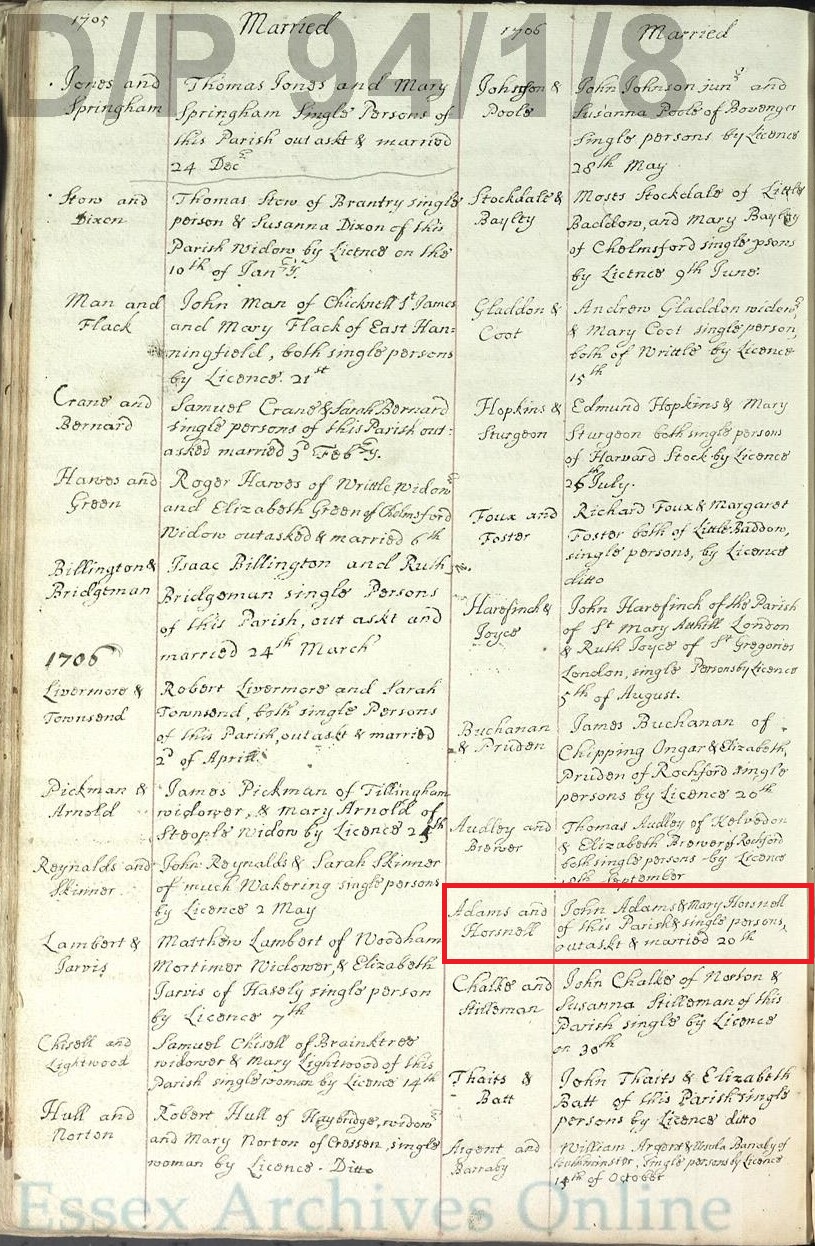 D/P 94/1/8
1705
Married
Jones and
Springham
Thomas Jones and Mary
Springham Single Persons of
this Parish out askt & married
24 Decr
Stow and
Dixon
Thomas Stow of Brantry single
person & Susanna Dixon of this
Parish Widow by Licence on the
10th of Janry.
Man and
Flack
John Man of Chicknell St James
and Mary Flack of East Han=
ningfield, both single persons
by Licence. 21st
Crane and
Bernard
Samuel Crane & Sarah Bernard
single persons of this Parish out=
asked married 3d Febry.
Hawes and
Green
Roger Hawes of Writtle Widowr
and Elizabeth Green of Chelmsford
Widow outasked & married 6th
Billington &
Bridgeman
Isaac Billington and Ruth
Bridgeman single Persons
of this Parish, out askt and
married 24th March
1706
Livermore &
Townsend
Robert Livermore and Sarah
Townsend, both single Persons
of this Parish, out askt & married
2d of Aprill.
Pickman &
Arnold
James Pickman of Tillingham
widower, & Mary Arnold of
Steople Widow by Licence 25th
Reynalds and
Skinner
John Reynalds & Sarah Skinner
of much Wakering single persons
by Licence 2 May
Lambert &
Jarvis
Matthew Lambert of Woodham
Mortimer Widower, & Elizabeth
Jarvis of Hasely single person
by Licence 7th
Chisell and
Lightwood
Samuel Chisell of Brainktree
widower & Mary Lightwood of this
Parish single woman by Licence 14th
Hull and
Norton
Robert Hull of Haybridge, widowr
and Mary Norton of Cressen, single
woman by Licence. Ditto
1706
Married
Johnson &
Poole
John Johnson junr and
Susanna Poole of Bovenger
single persons by Licence
28th May
Stockdale &
Bayley
Moses Stockdale of Little
Baddow, and Mary Bayley
of Chelmsford single psons
by Licence 9th June.
Gladdon &
Coot
Andrew Gladdon widowr
& Mary Coot single person,
both of Writtle by Licence
15th
Hopkins &
Sturgeon
Edmund Hopkins & Mary
Sturgeon both single persons
of Harvard Stock by Licence
26th July.
Foux and
Foster
Richard Foux & Margaret
Foster both of Little Baddow,
single persons, by Licence
ditto
Harefinch &
Joyce
John Harefinch of the Parish
of St Mary Athill London
& Ruth Joyce of St Gregories
London, single Persons by Licence
5th of August.
Buchanan
& Pruden
James Buchanan of
Chipping Ongar & Elizabeth
Pruden of Rochford single
persons by Licence 20th
Audley and
Brewer
Thomas Audley of Kelvedon
& Elizabeth Brewer of Rochford
both single persons by Licence
September
Adams and
Horsnell
John Adams & Mary Horsnell
of this Parish & single persons,
out askt & married 20th
Chalke and
Stilleman
John Chalke of Norton &
Susanna Stilleman of this
Parish single by Licence
on 30th
Thaits &
Batt
John Thaits & Elizabeth
Batt of this Parish single
persons by Licence ditto
Argent and
Barnaby
William Argent & Ursula Barnaby of
single persons by Licence
14th of October
Essex Archives Online